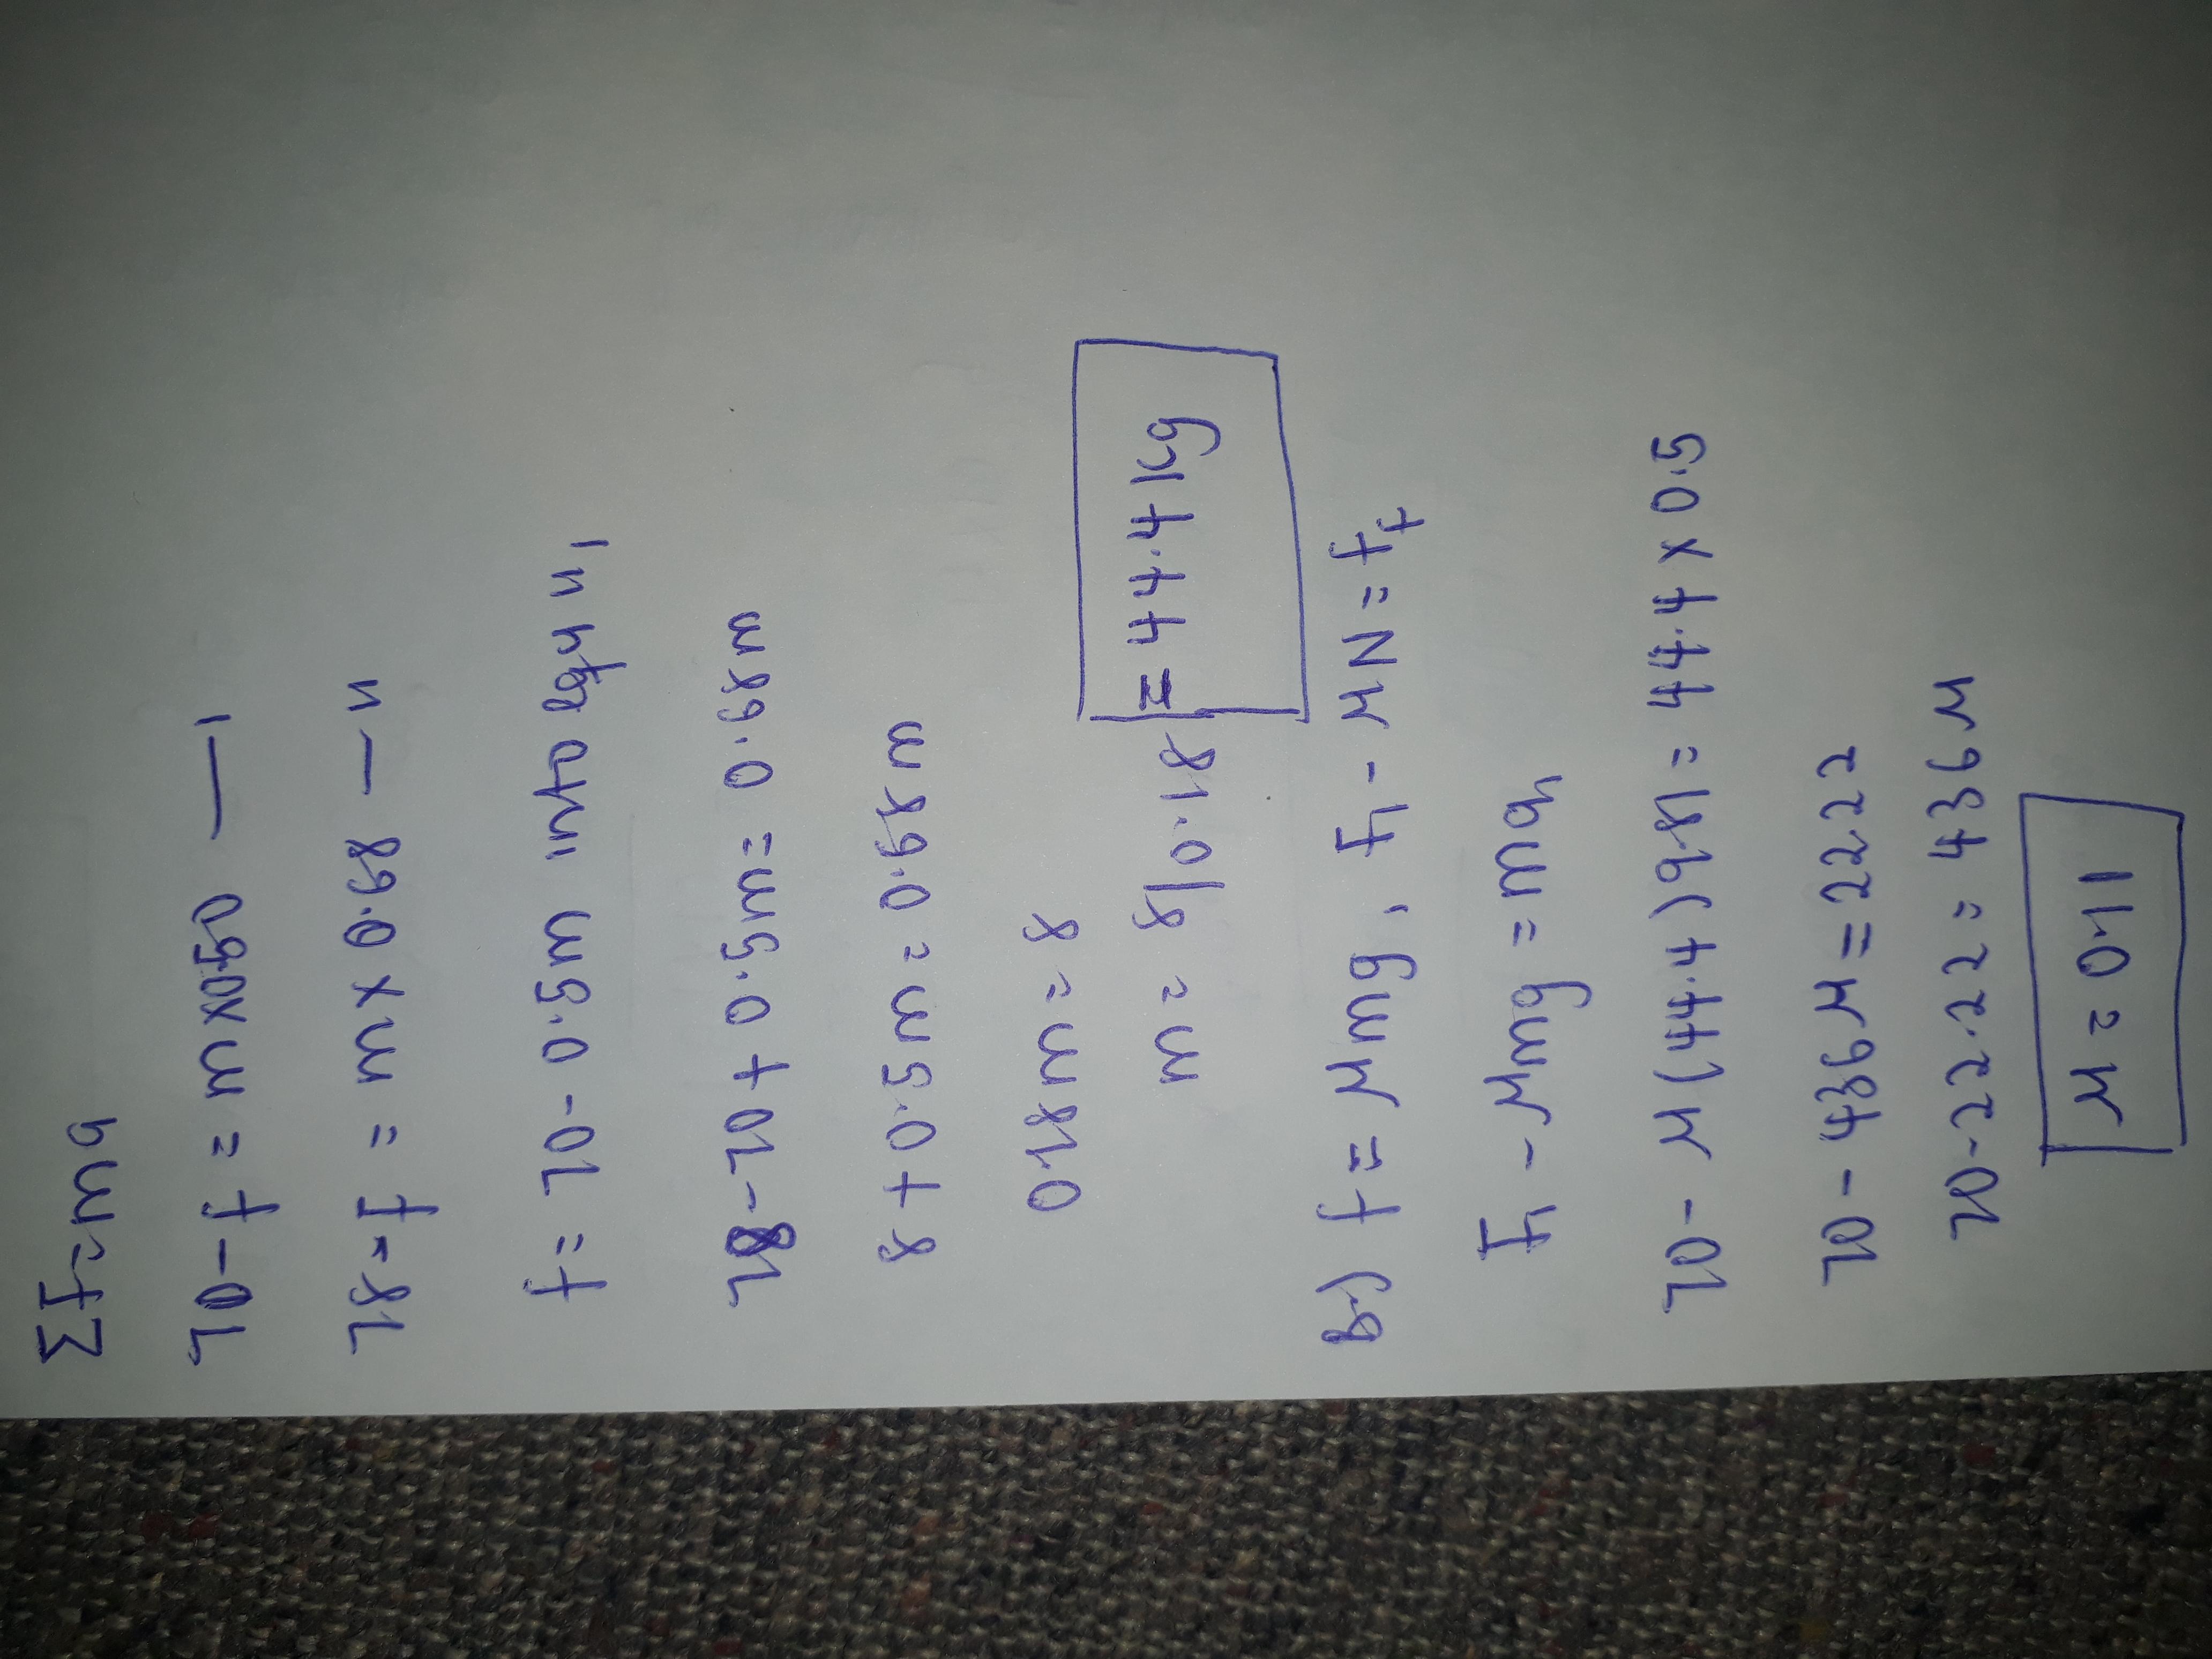 Σf=ma
70-f = m x0.50 — 1
78-f = m x 0.68 — 11
f = 70-0.5m into eqn 11,
78-70+0.5m = 0.68m
8+0.5m = 0.68m
0.18m = 8
m = 8/0.18 = 44.4 kg
b.) f = μmg, F₁ - μN = f_t
F₁ - μmg = ma,
70 - μ(44.4)(9.81) = 44.4 x 0.5
70 - 436μ = 22.22
70-22.22 = 436μ
μ = 0.11